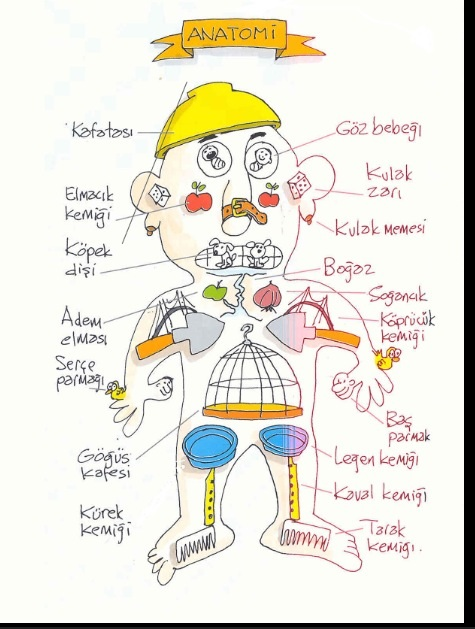 ANATOMİ
Kafatası
Elmacık
kemiği
Köpek
dişi
Adem
elması
Serçe
parmağı
Göğüs
kafesi
Kürek
kemiği
Göz bebeği
Kulak
zarı
Kulak memesi
Boğaz
Soğancık
Köprücük
kemiği
Baş
parmak
Leğen kemiği
Kaval kemiği
Tarak
kemiği.
?